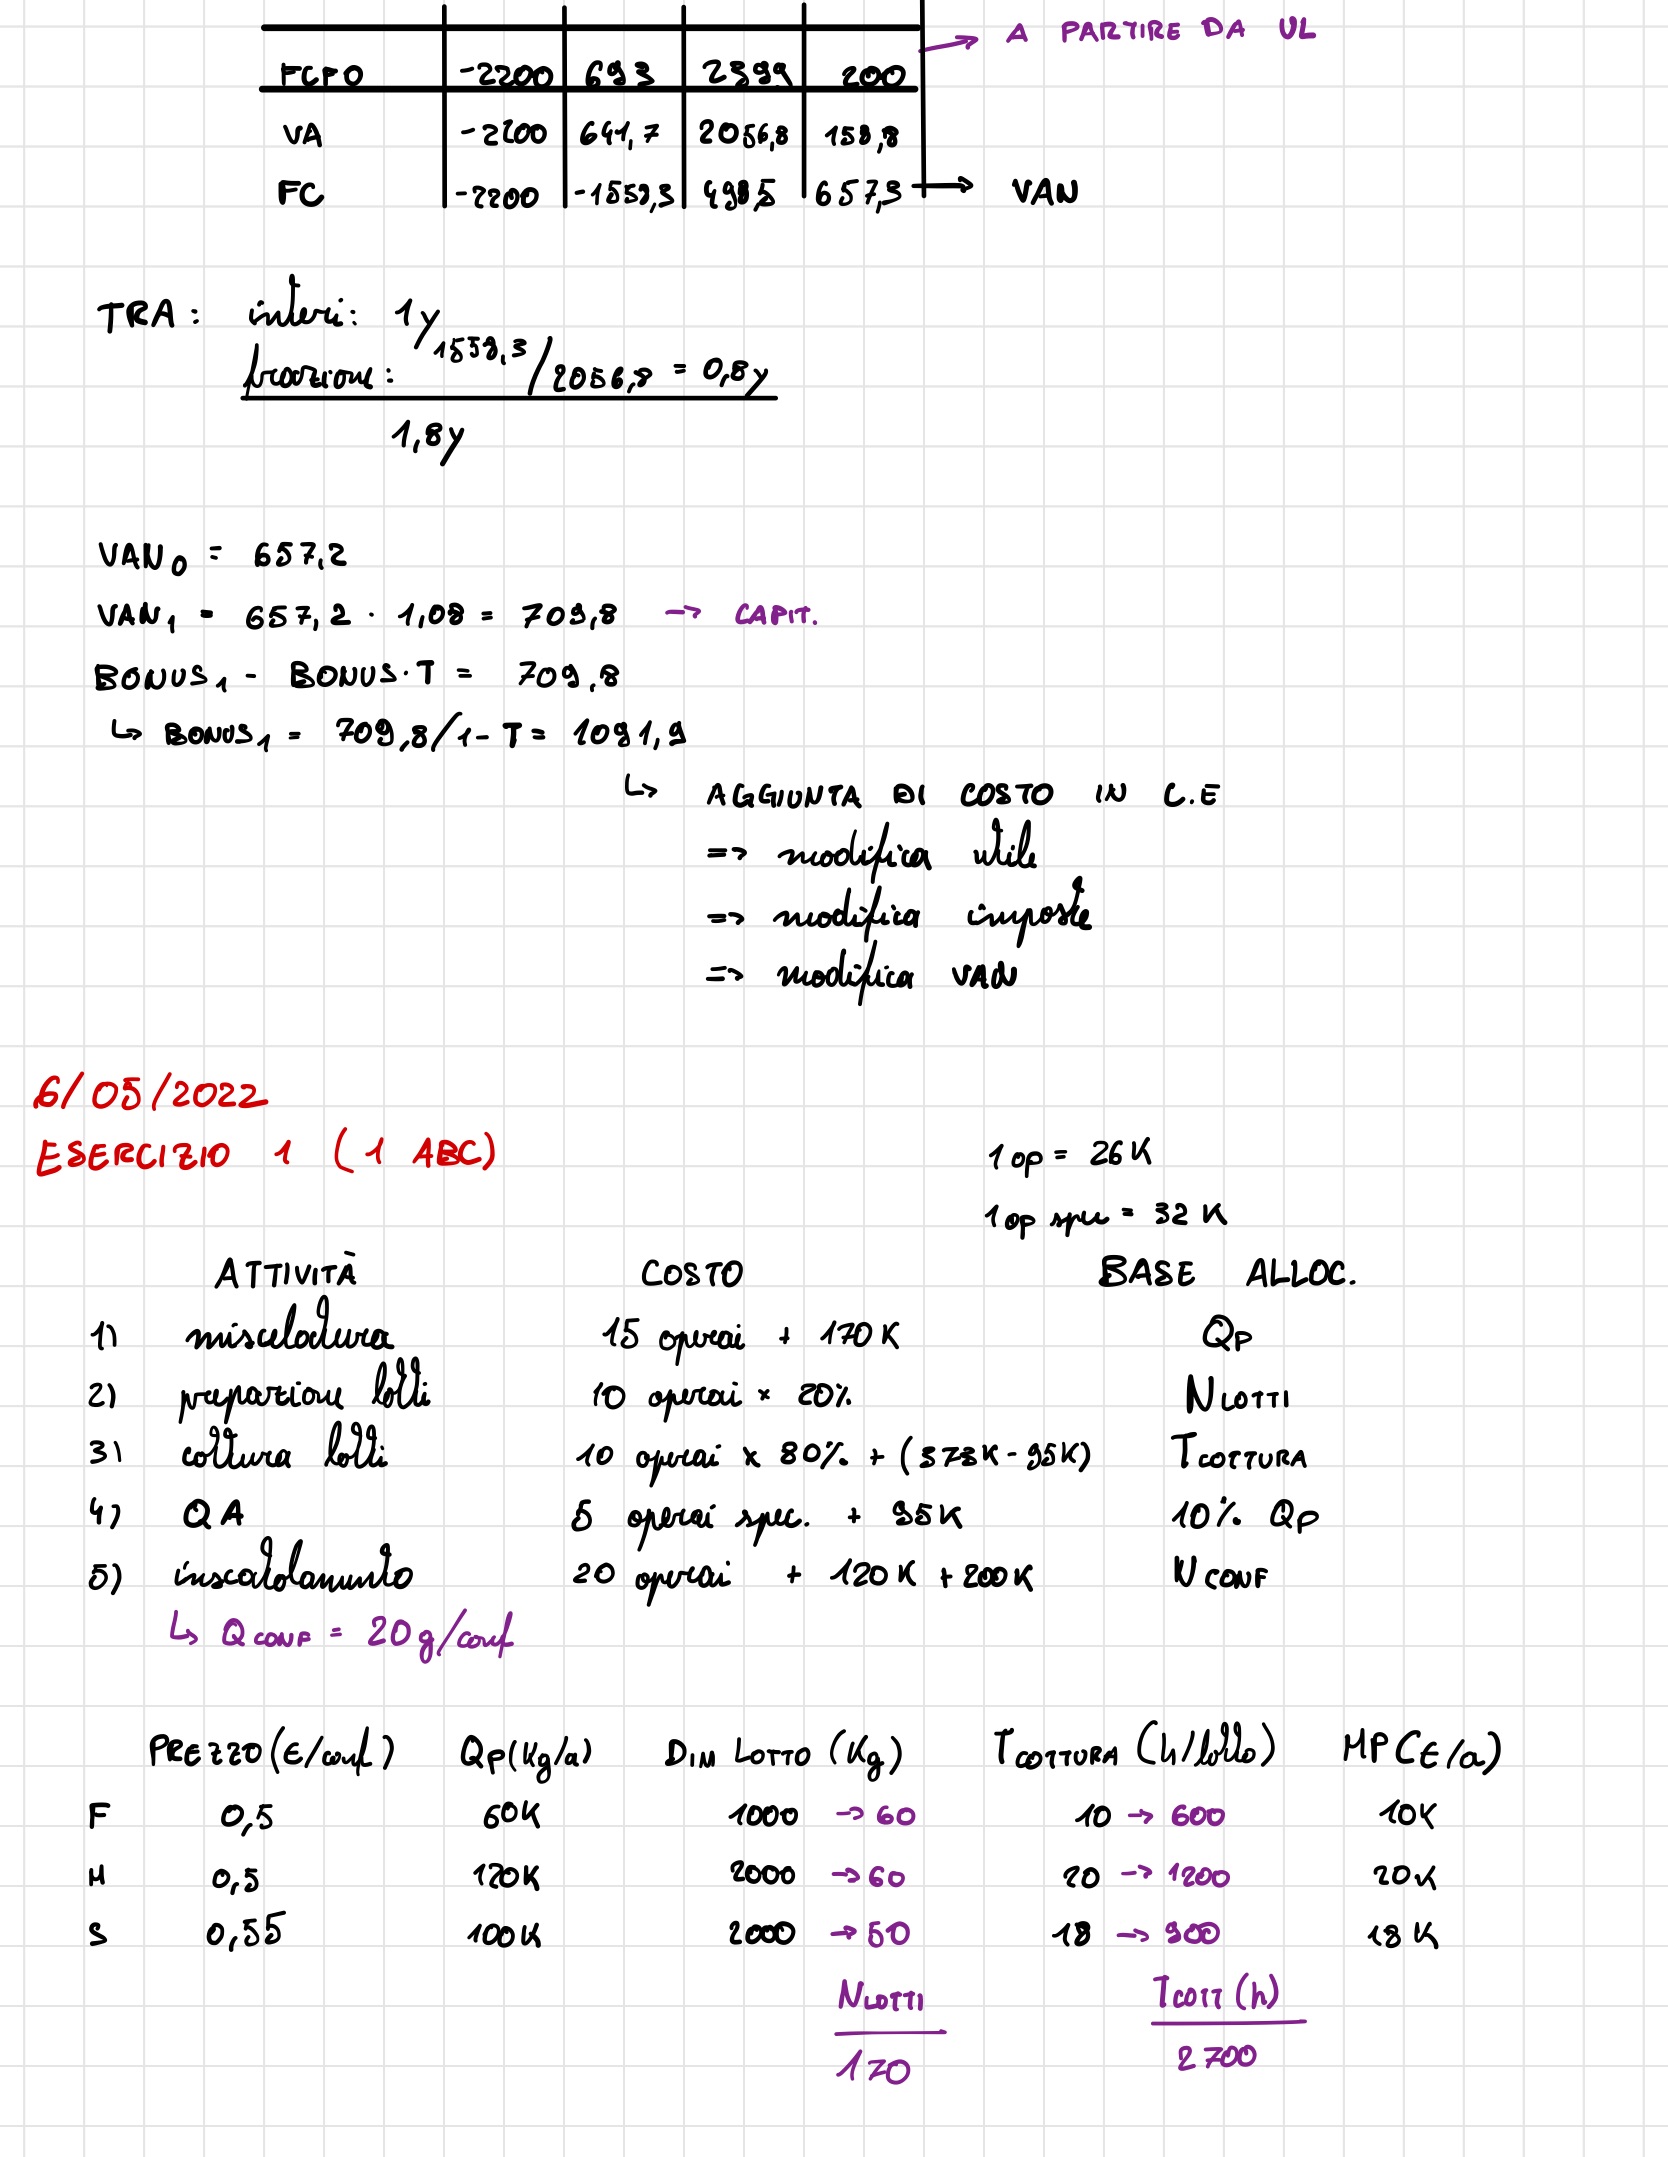 A PARTIRE DA UL
FCPO -2200 693 2399 200
VA -2200 641,7 2056,8 158,8
FC -2200 -1558,3 498,5 657,3 → VAN
TRA: interi: 1y
frazione: 1558,3/2056,8 = 0,8y
1,8y
VAN0 = 657,2
VAN1 = 657,2 · 1,08 = 709,8 → CAPIT.
BONUS1 - BONUS·T = 709,8
↳ BONUS1 = 709,8/1-T = 1091,9
↳ AGGIUNTA DI COSTO IN C.E
=> modifica utile
=> modifica imposte
=> modifica VAN
6/05/2022
ESERCIZIO 1 (1 ABC)
1 op = 26K
1 op spec = 32K
ATTIVITÀ COSTO BASE ALLOC.
1) miscelatura 15 operai + 170K QP
2) preparazione lotti 10 operai × 20% NLOTTI
3) cottura lotti 10 operai × 80% + (373K-95K) TCOTTURA
4) QA 5 operai spec. + 95K 10% QP
5) inscatolamento 20 operai + 120K + 200K NCONF
↳ QCONF = 20g/conf
PREZZO (€/conf) QP (Kg/a) DIM LOTTO (Kg) TCOTTURA (h/lotto) MP (€/a)
F 0,5 60K 1000 → 60 10 → 600 10K
M 0,5 120K 2000 → 60 20 → 1200 20K
S 0,55 100K 2000 → 50 18 → 900 18K
NLOTTI TCOTT (h)
170 2700